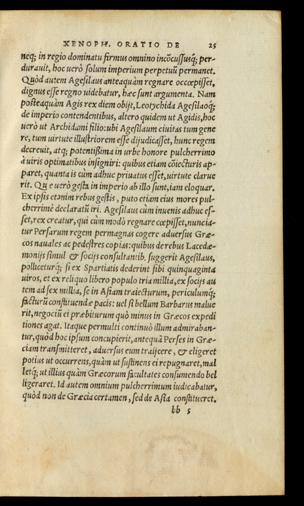 XENOPH. ORATIO DE 25
neq; in regio dominatu firmus omnino incōcussusq́; per-
durauit, hoc uerò solum imperium perpetuū permanet.
Quòd autem Agesilaus anteaquàm regnare occœpisset,
dignus esse regno uidebatur, hæc sunt argumenta. Nam
posteaquàm Agis rex diem obijt, Leotychida Agesilaoq́;
de imperio contendentibus, altero quidem ut Agidis, hoc
uerò ut Archidami filio: ubi Agesilaum ciuitas tum gene
re, tum uirtute illustriorem esse dijudicasset, hunc regem
decreuit, atq; potentißima in urbe honore pulcherrimo
à uiris optimatibus insigniri: quibus etiam cōiecturis ap-
paret, quanta is cùm adhuc priuatus esset, uirtute clarue
rit. Quæ uerò gesta in imperio ab illo sunt, iam eloquar.
Ex ipsis etenim rebus gestis, puto etiam eius mores pul-
cherrimè declaratū iri. Agesilaus cùm iuuenis adhuc es-
set, rex creatur, qui cùm modò regnare cœpisset, nuncia-
tur Persarum regem permagnas cogere aduersus Græ-
cos nauales ac pedestres copias: quibus de rebus Lacedæ-
monijs simul & socijs consultantib. suggerit Agesilaus,
polliceturq́; si ex Spartiatis dederint sibi quinquaginta
uiros, et ex reliquo libero populo tria millia, ex socijs au
tem ad sex millia, se in Asiam traiecturum, periculumq́;
facturū constituendæ pacis: uel si bellum Barbarus malue
rit, negociū ei præbiturum quò minus in Græcos expedi
tiones agat. Itaque permulti continuò illum admiraban-
tur, quòd hoc ipsum concupierit, antequā Perses in Græ-
ciam transmitteret, aduersus eum traijcere, & eligeret
potius ut occurrens, quàm ut sustinens ei repugnaret, mal
letq́; ut illius quàm Græcorum facultates consumendo bel
ligeraret. Id autem omnium pulcherrimum iudicabatur,
quòd non de Græcia certamen, sed de Asia constitueret.
bb 5